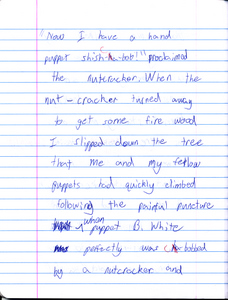 "Now I have a hand
puppet shish-ka-bob!" proclaimed
the nutcracker. When the
nut-cracker turned away
to get some fire wood
I slipped down the tree
that me and my fellow
puppets had quickly climbed
following the painful puncture
when puppet B. White
perfectly was bobbed
by a nutcracker and